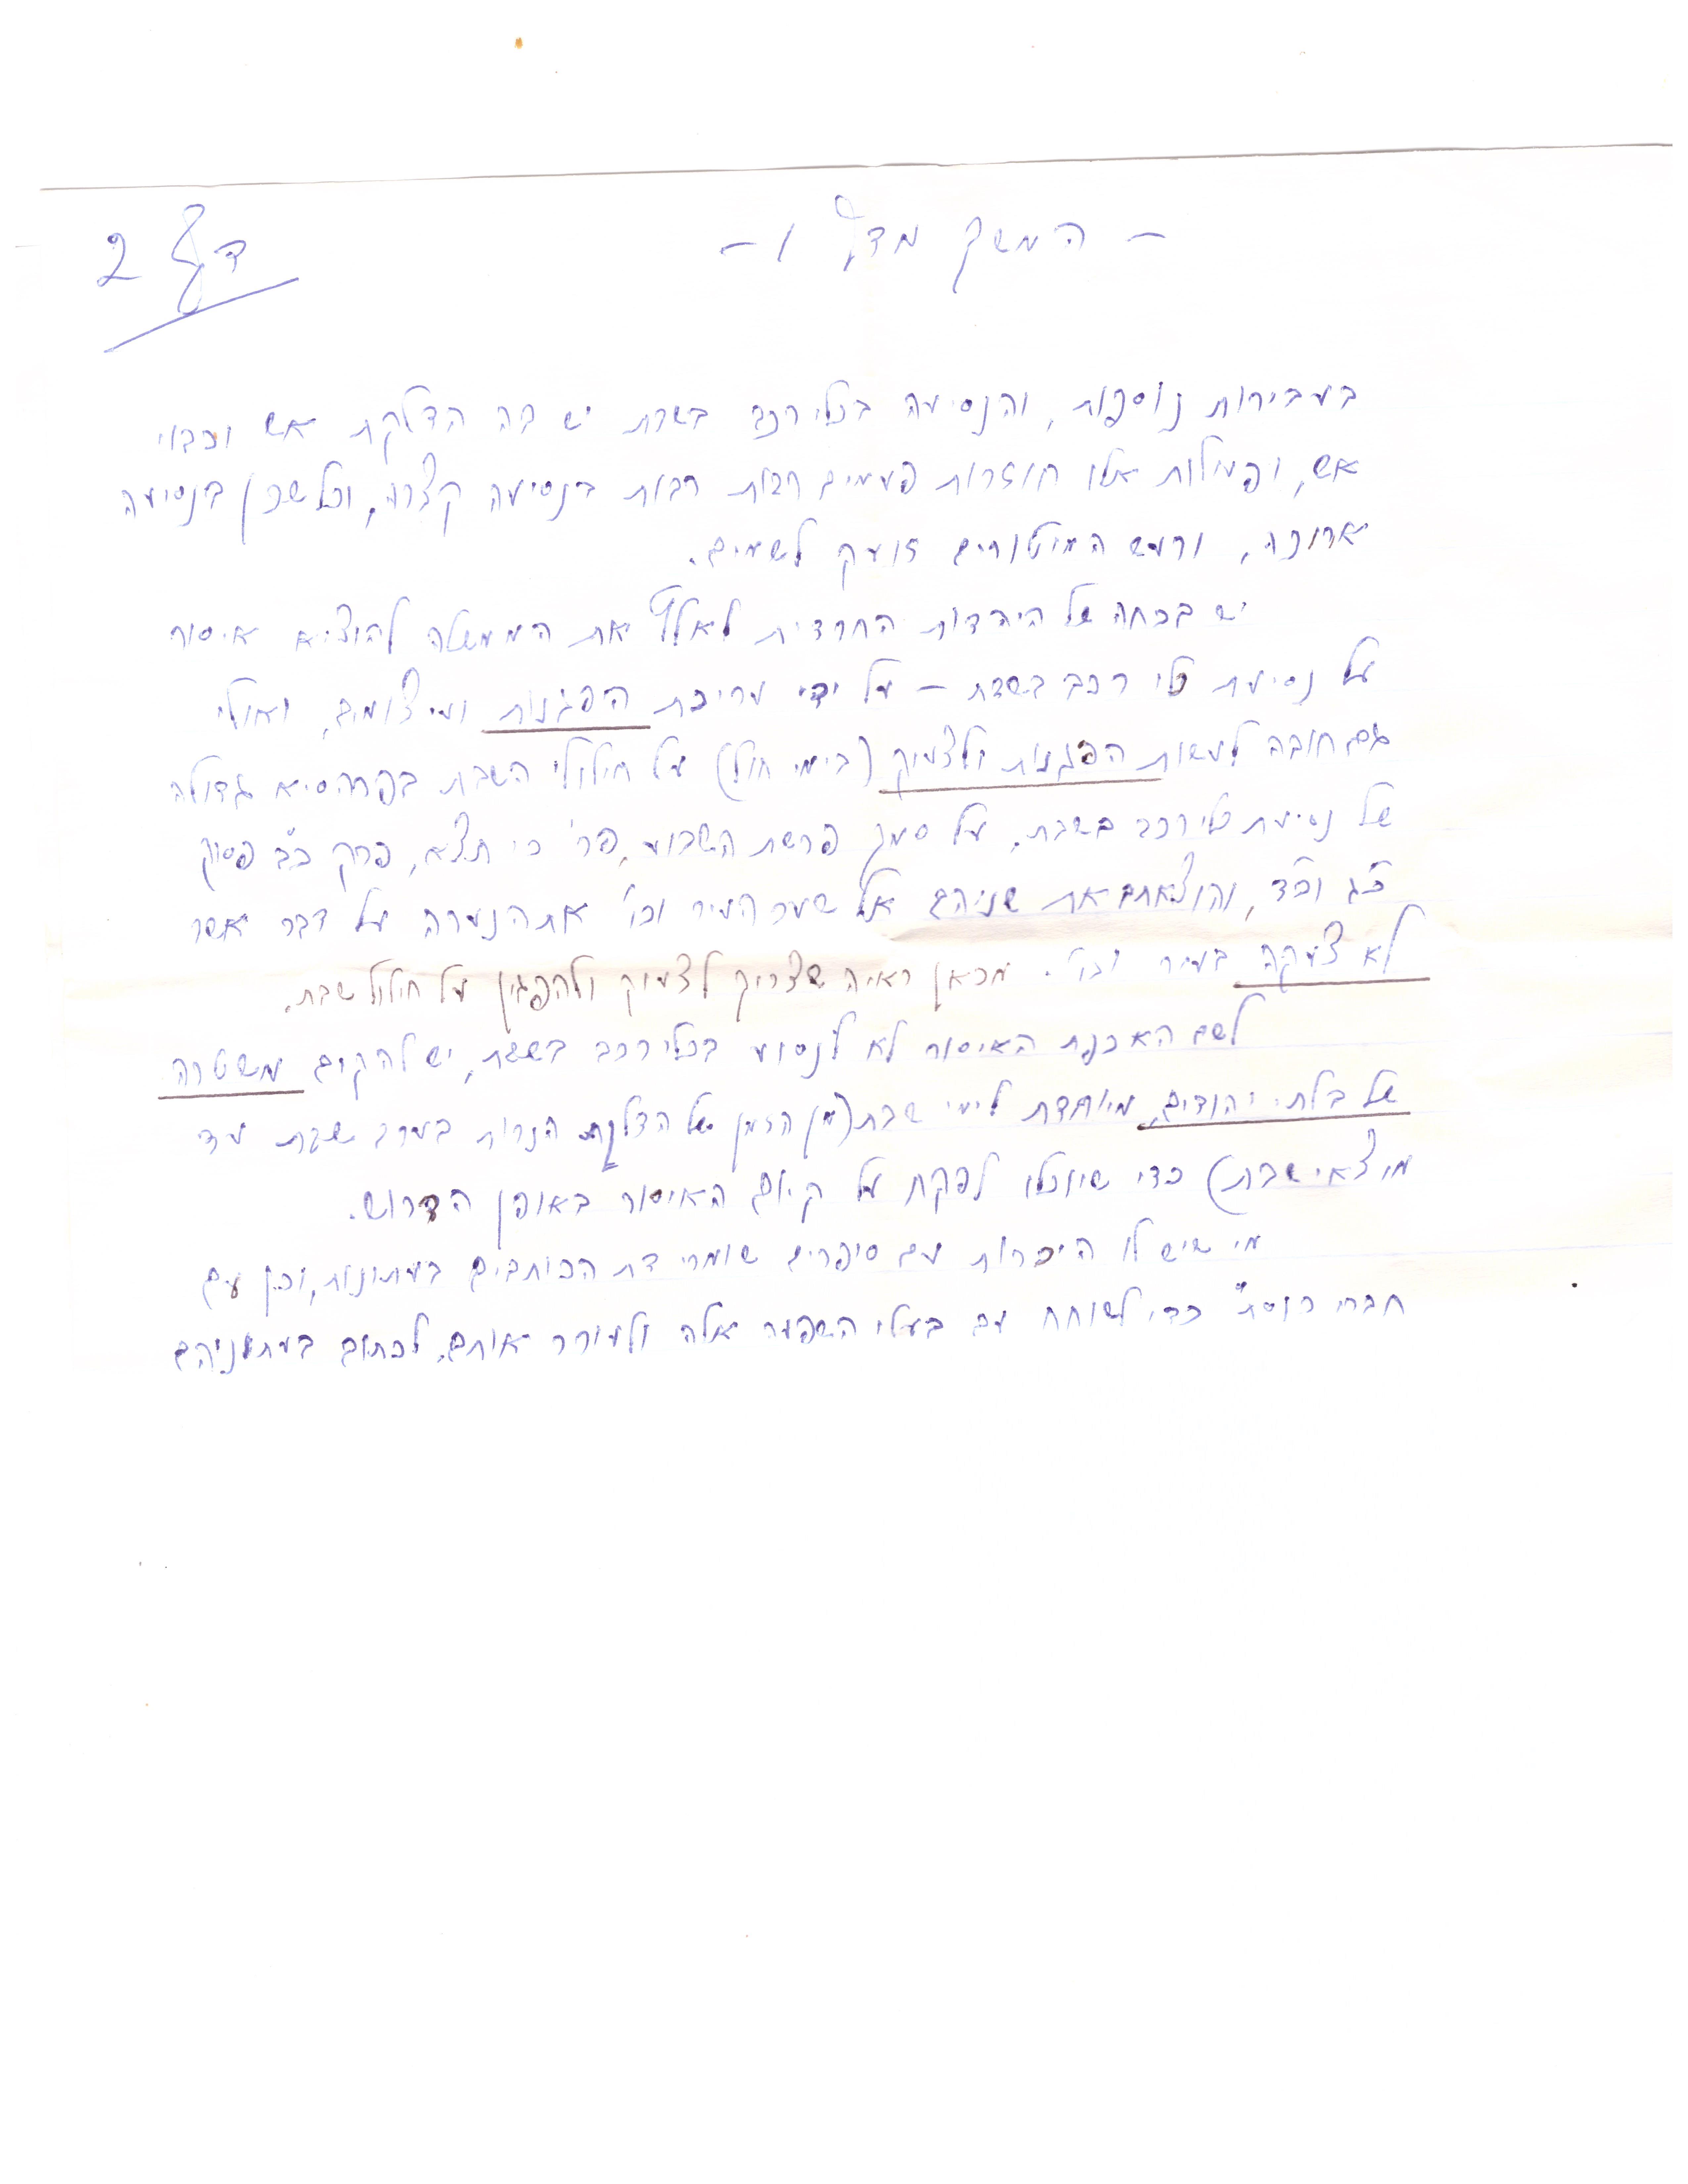 דף 2
- המשך מדף 1 -
בעבירות נוספות, והנסיעה בכלי רכב בשבת יש בה הדלקת אש וכבוי
אש, ופעילות אלו חוזרות פעמים רבות רבות בנסיעה קצרה, וכל שכן בנסיעה
ארוכה, ורעש המיטורים זועק לשמים.
יש בכחה של היהדות החרדית לאלץ את הממשלה להוציא איסור
על נסיעת כלי רכב בשבת - על ידי עריכת הפגנות ועיצומים, ואולי
גם חובה לעשות הפגנות ולצעוק (בימי חול) על חילולי השבת בפרהסיא גדולה
של נסיעת כלי רכב בשבת. על סמך פרשת השבוע, פר' כי תצא, פרק כ"ב פסוק
כ"ג וכ"ד, והוצאתם את שניהם אל שער העיר וכו' את הנערה על דבר אשר
לא צעקה בעיר וכו'. מכאן ראיה שצריך לצעוק ולהפגין על חילול שבת.
לשם האכנת האיסור לא לנסוע בכלי רכב בשבת, יש להקים משטרה
של בלתי יהודים, מיוחדת לימי שבת (מן הזמן של הדלקת הנרות בערב שבת עד
מוצאי שבת) כדי שיוכלו לפקח על קיום האיסור באופן הדרוש.
מי שיש לו היכרות עם סופרים שומרי דת הכותבים בעתונות, וכן עם
חברי כנסת כדי לשוחח עם בעלי השפעה אלה ולעורר אותם, לכתוב בעתוניהם